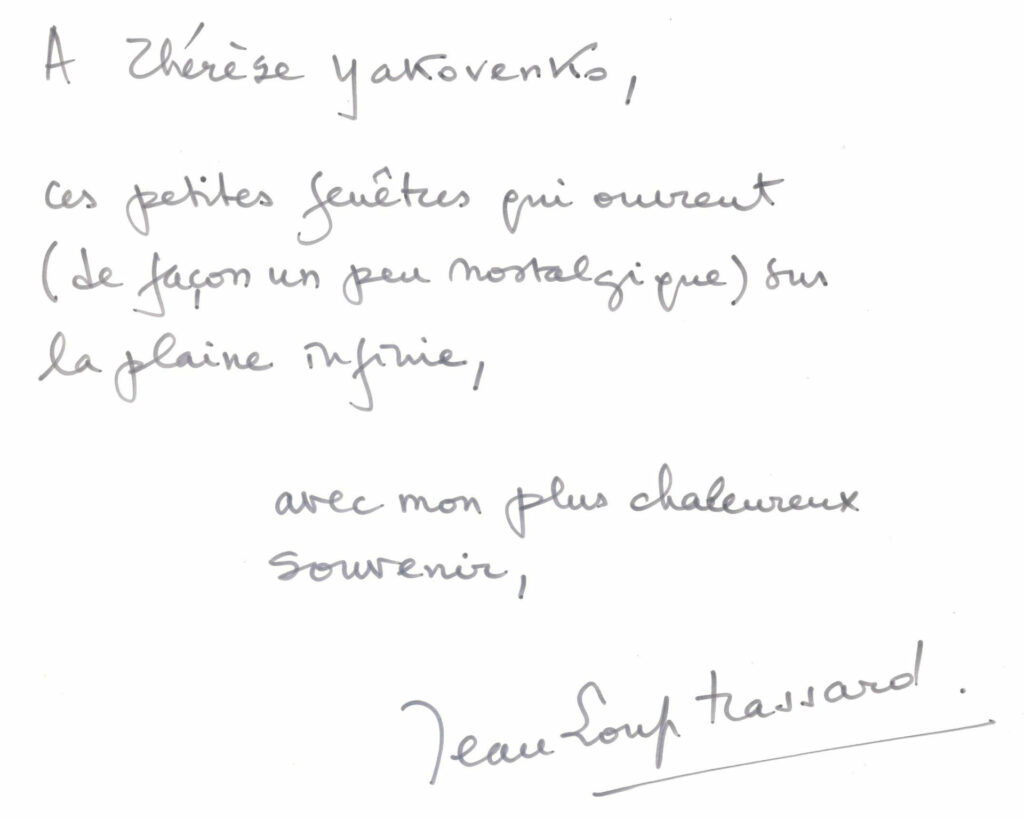 A Thérèse Yakovenko,
ces petites fenêtres qui ouvrent
(de façon un peu nostalgique) sur
la plaine infinie,
avec mon plus chaleureux
souvenir,
Jean Loup Trassard.